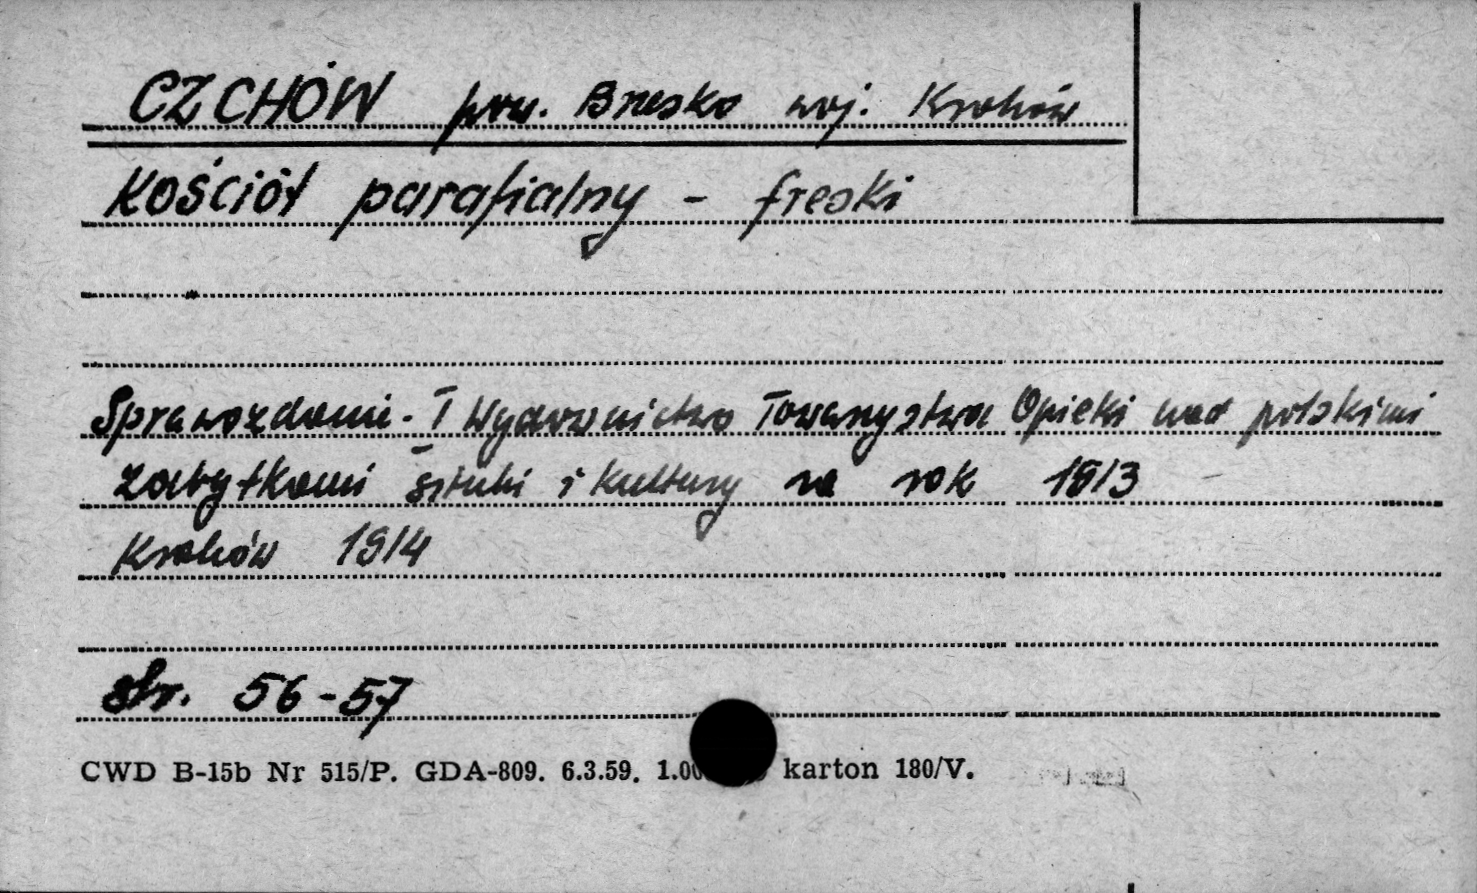 CZCHÓW pow. Brzesko woj. Kraków
Kościół parafialny - freski
Sprawozdanie. I Wydawnictwo Towarzystwa Opieki nad polskimi
zabytkami sztuki i kultury za rok 1913
Kraków 1914
str. 56-57
CWD B-15b Nr 515/P. GDA-809. 6.3.59. karton 180/V.